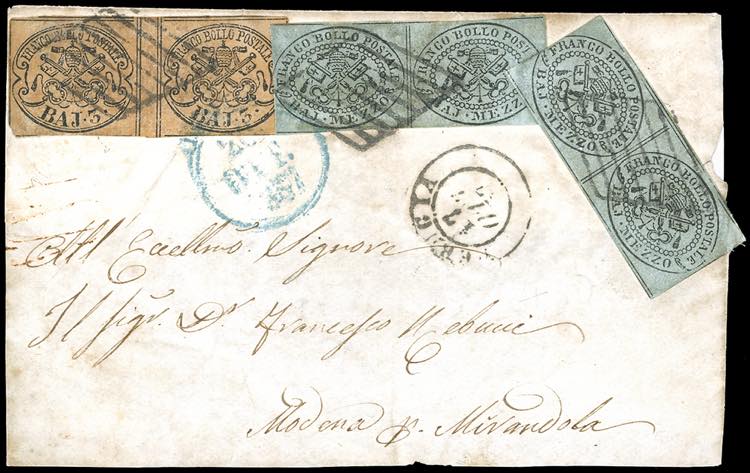 FRANCO BOLLO POSTALE
BAJ. 3.
FRANCO BOLLO POSTALE
BAJ. 3.
FRANCO BOLLO POSTALE
MEZZO
FRANCO BOLLO POSTALE
MEZZ
FRANCO BOLLO POSTALE
BAJ. MEZZO
FRANCO BOLLO POSTALE
MEZZO
All' Eccellmo. Signore
Il Sigr. Dr. Francesco
Modena p. Mirandola